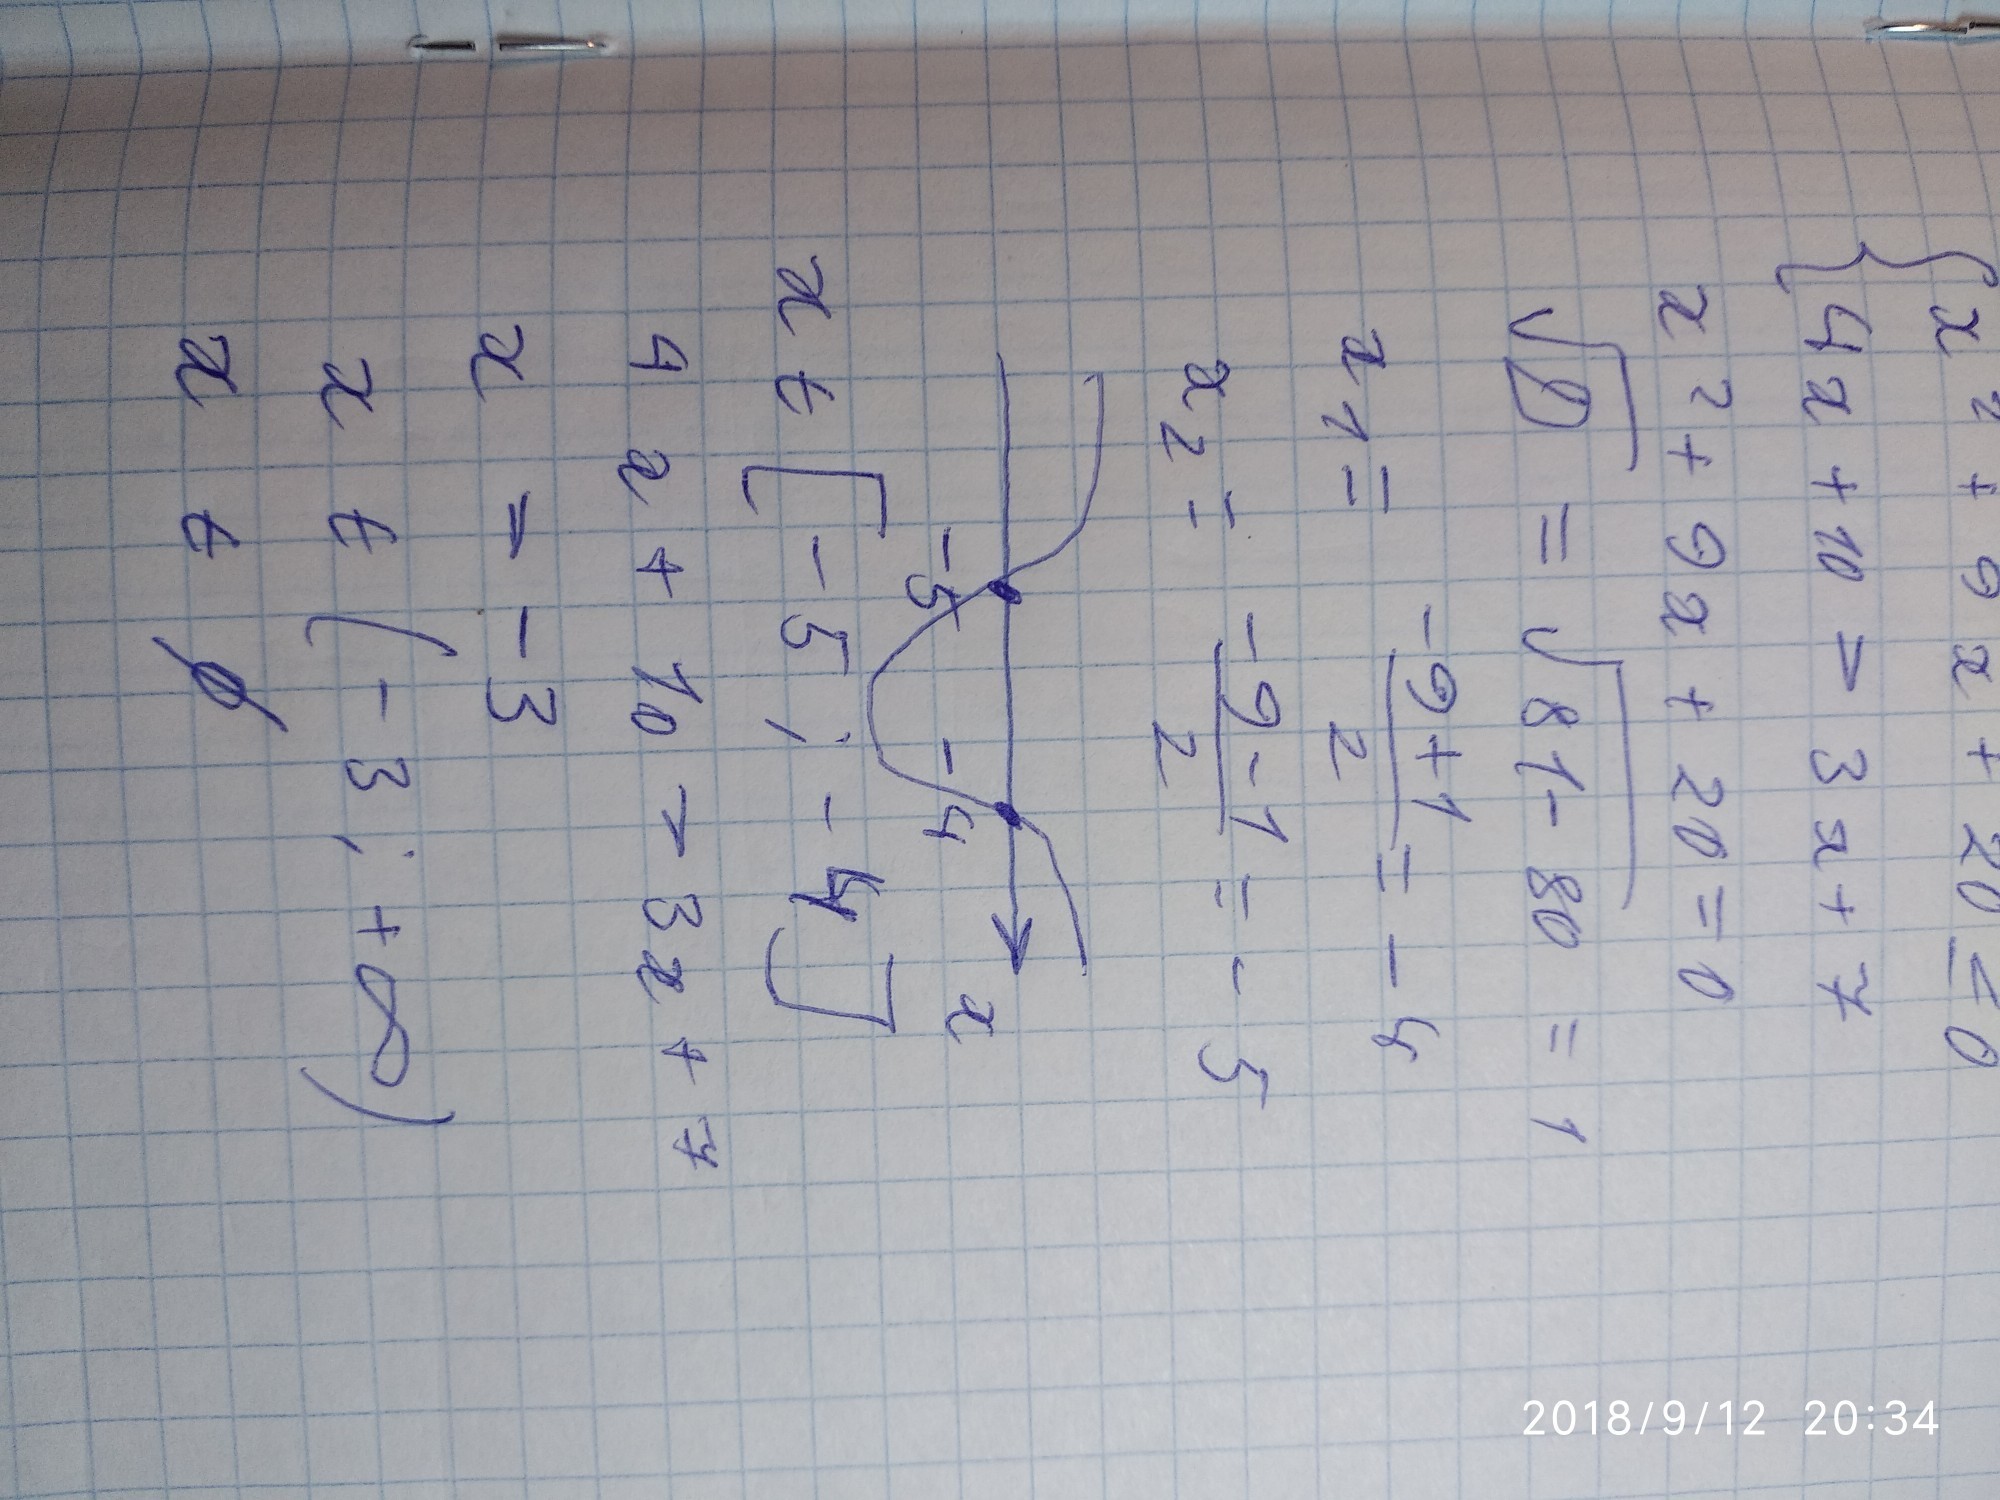 {x² + 9x + 20 ≤ 0
{4x + 10 > 3x + 7
x² + 9x + 20 = 0
√D = √81 - 80 = 1
x1 = (-9+1)/2 = -4
x2 = (-9-1)/2 = -5
-5 -4 x
x ∈ [-5; -4]
4x + 10 > 3x + 7
x > -3
x ∈ (-3; +∞)
x ∈ ∅
2018/9/12 20:34